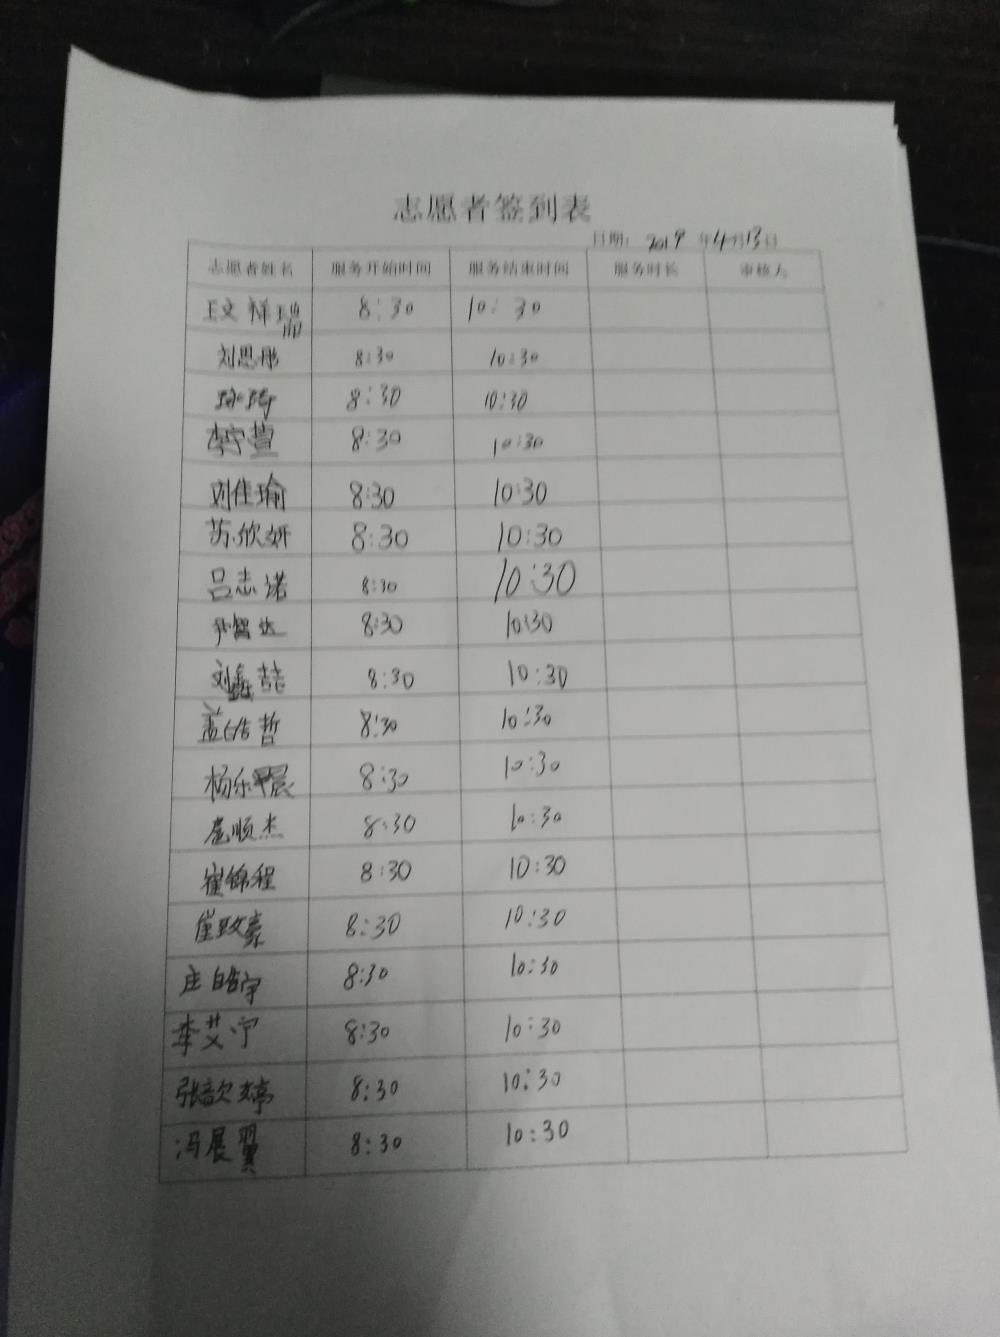 志愿者签到表
日期: 2019 年4月13日
志愿者姓名 服务开始时间 服务结束时间 服务时长 审核人
王文祥瑞 8:30 10:30
刘思彤 8:30 10:30
8:30 10:30
李宁萱 8:30 10:30
刘佳瑜 8:30 10:30
苏欣妍 8:30 10:30
吕志诺 8:30 10:30
尹智达 8:30 10:30
刘鑫喆 8:30 10:30
孟皓哲 8:30 10:30
杨乐晨 8:30 10:30
庞顺杰 8:30 10:30
崔锦程 8:30 10:30
崔政豪 8:30 10:30
庄皓宇 8:30 10:30
李艾宁 8:30 10:30
张歆婷 8:30 10:30
冯展翼 8:30 10:30